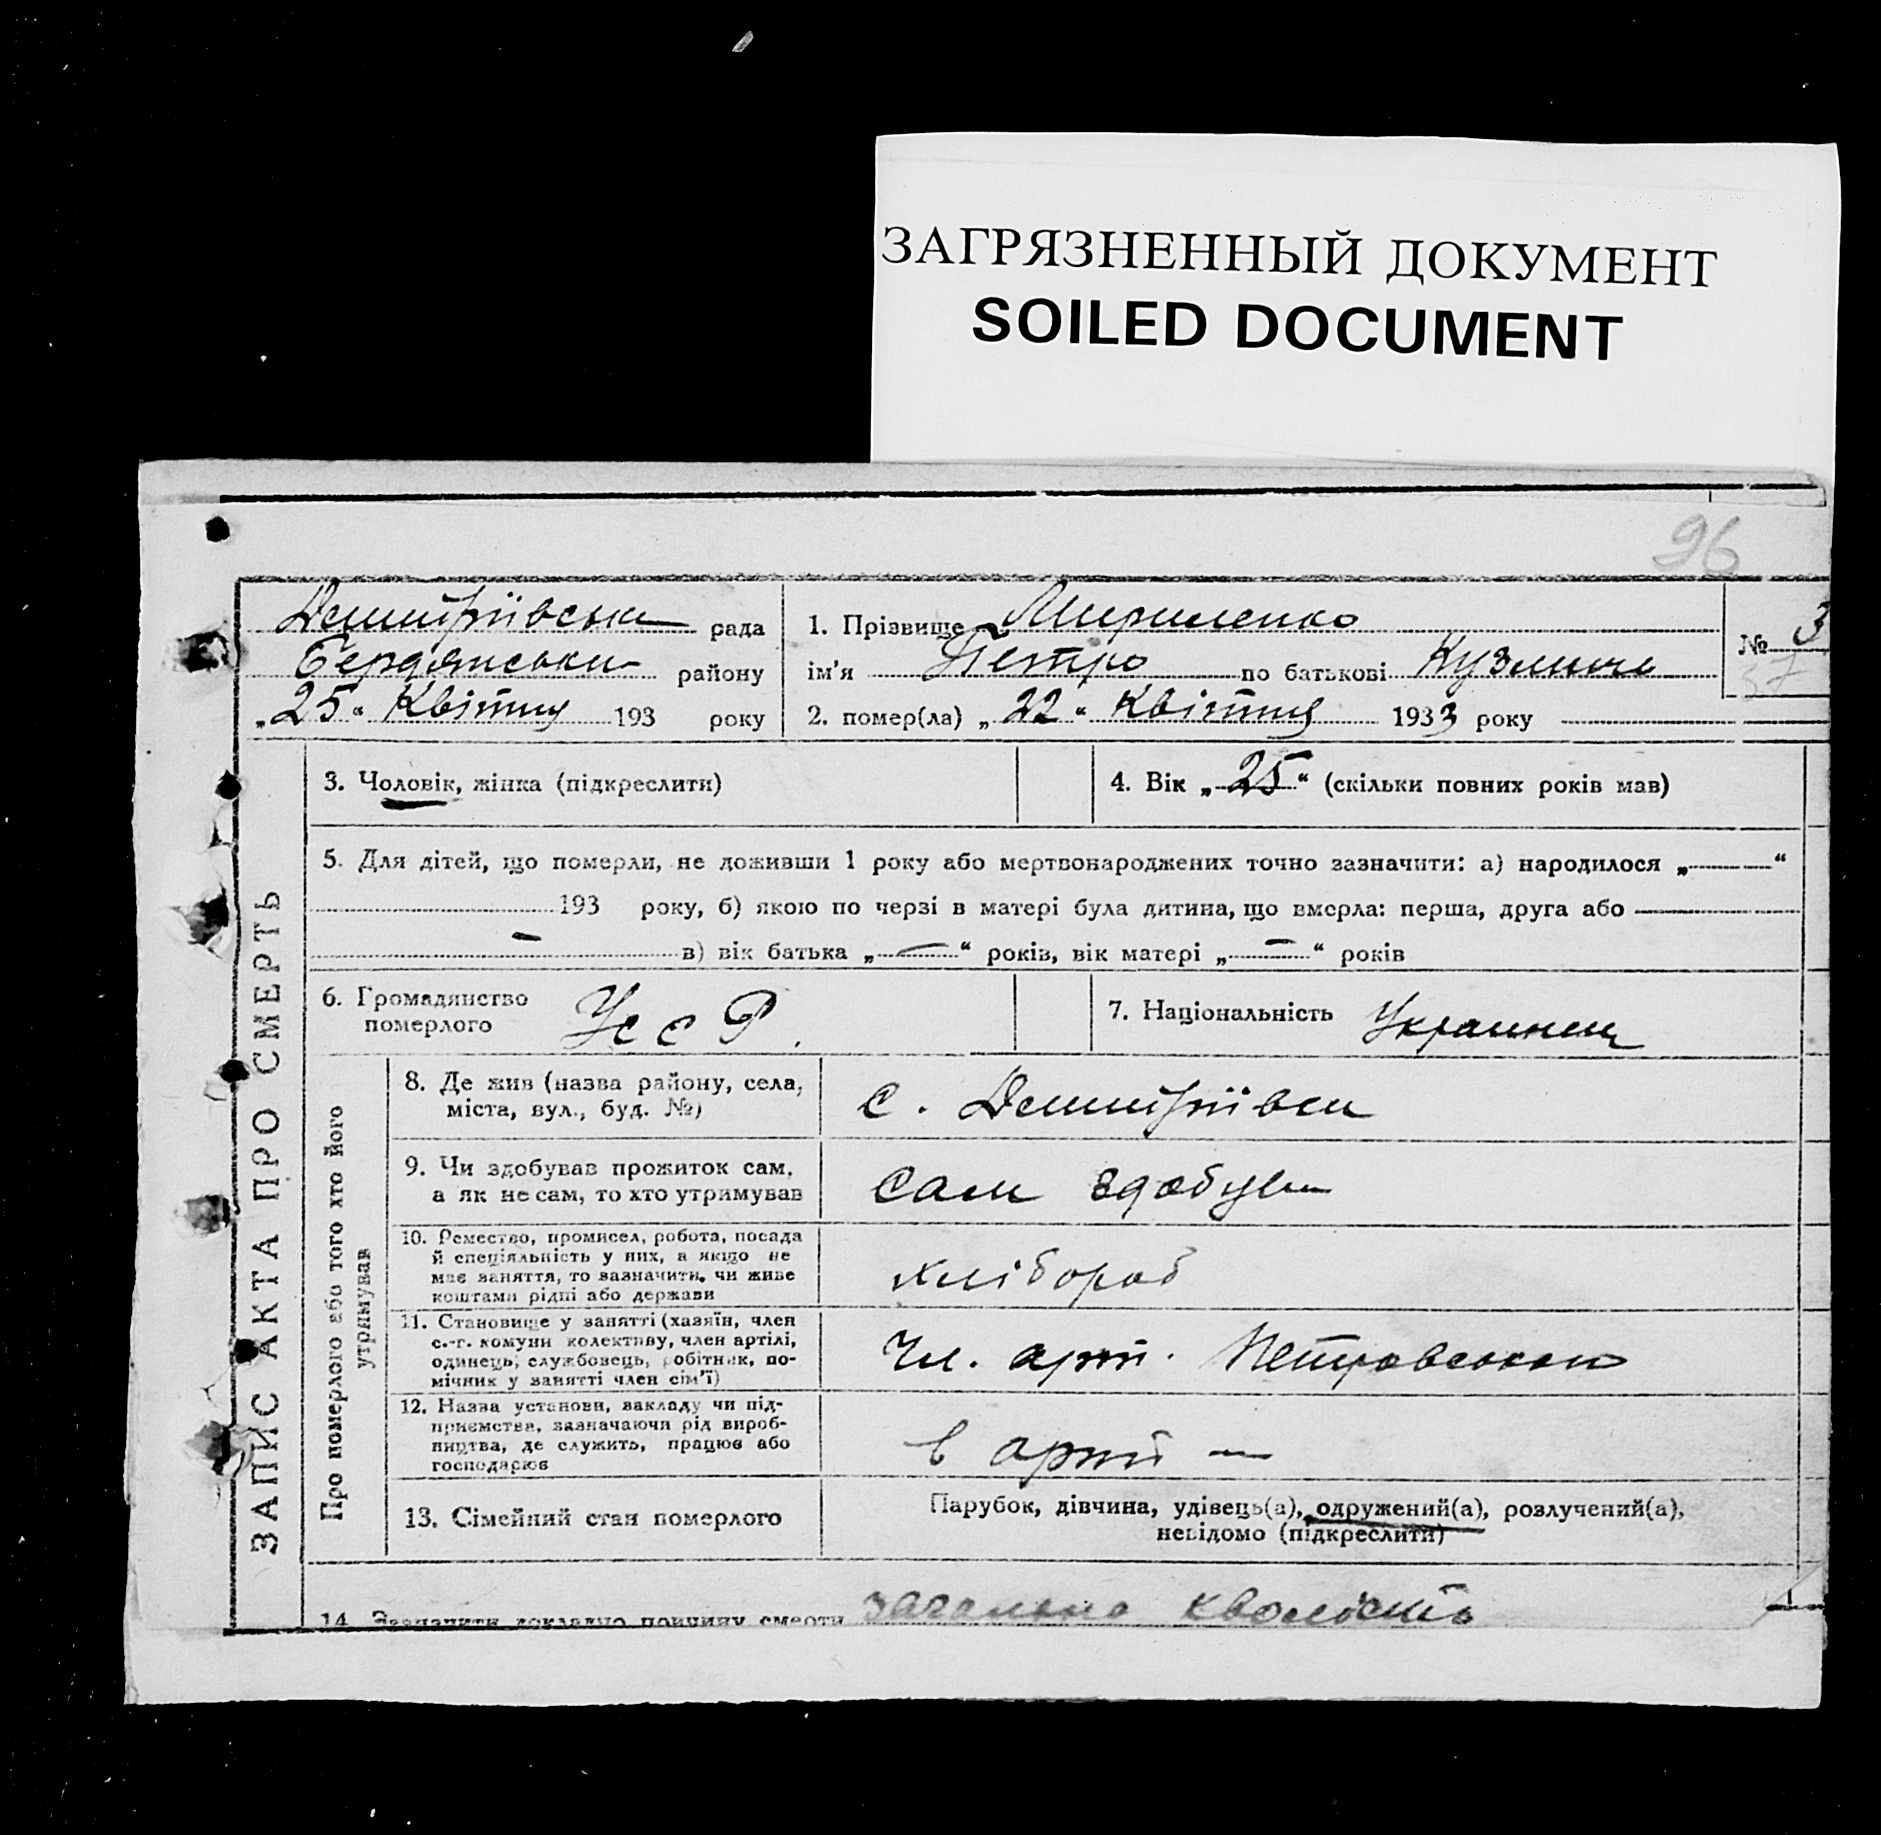 ЗАГРЯЗНЕННЫЙ ДОКУМЕНТ
SOILED DOCUMENT
96
ЗАПИС АКТА ПРО СМЕРТЬ
Дмитріївська рада
Бердянськ району
„25“ Квітня 193 року
1. Прізвище Мириленко
ім'я Петро по батькові Кузьмич
2. помер(ла) „22“ Квітня 1933 року
№ 3
37
3. Чоловік, жінка (підкреслити)
4. Вік „25“ (скільки повних років мав)
5. Для дітей, що померли, не доживши 1 року або мертвонароджених точно зазначити: а) народилося „—“
193 року, б) якою по черзі в матері була дитина, що вмерла: перша, друга або
— в) вік батька „—“ років, вік матері „—“ років
6. Громадянство
померлого УССР.
7. Національність Украинец
Про померлого або того хто його
утримував
8. Де жив (назва району, села,
міста, вул., буд. №)
с. Дмитріївка
9. Чи здобував прожиток сам,
а як не сам, то хто утримував
сам здобував
10. Ремество, промисел, робота, посада
й спеціяльність у них, а якщо не
має заняття, то зазначити, чи живе
коштами рідні або держави
хлібороб
11. Становище у занятті (хазяїн, член
с.-г. комуни колективу, член артілі,
одинець, службовець, робітник, по-
мічник у занятті член сім'ї)
Чл. арт. Петровського
12. Назва установи, закладу чи під-
приємства, зазначаючи рід вироб-
ництва, де служить, працює або
господарює
в арті —
13. Сімейний стан померлого
Парубок, дівчина, удівець(а), одружений(а), розлучений(а),
невідомо (підкреслити)
14. Зазначити докладно причину смерти загальна кволість